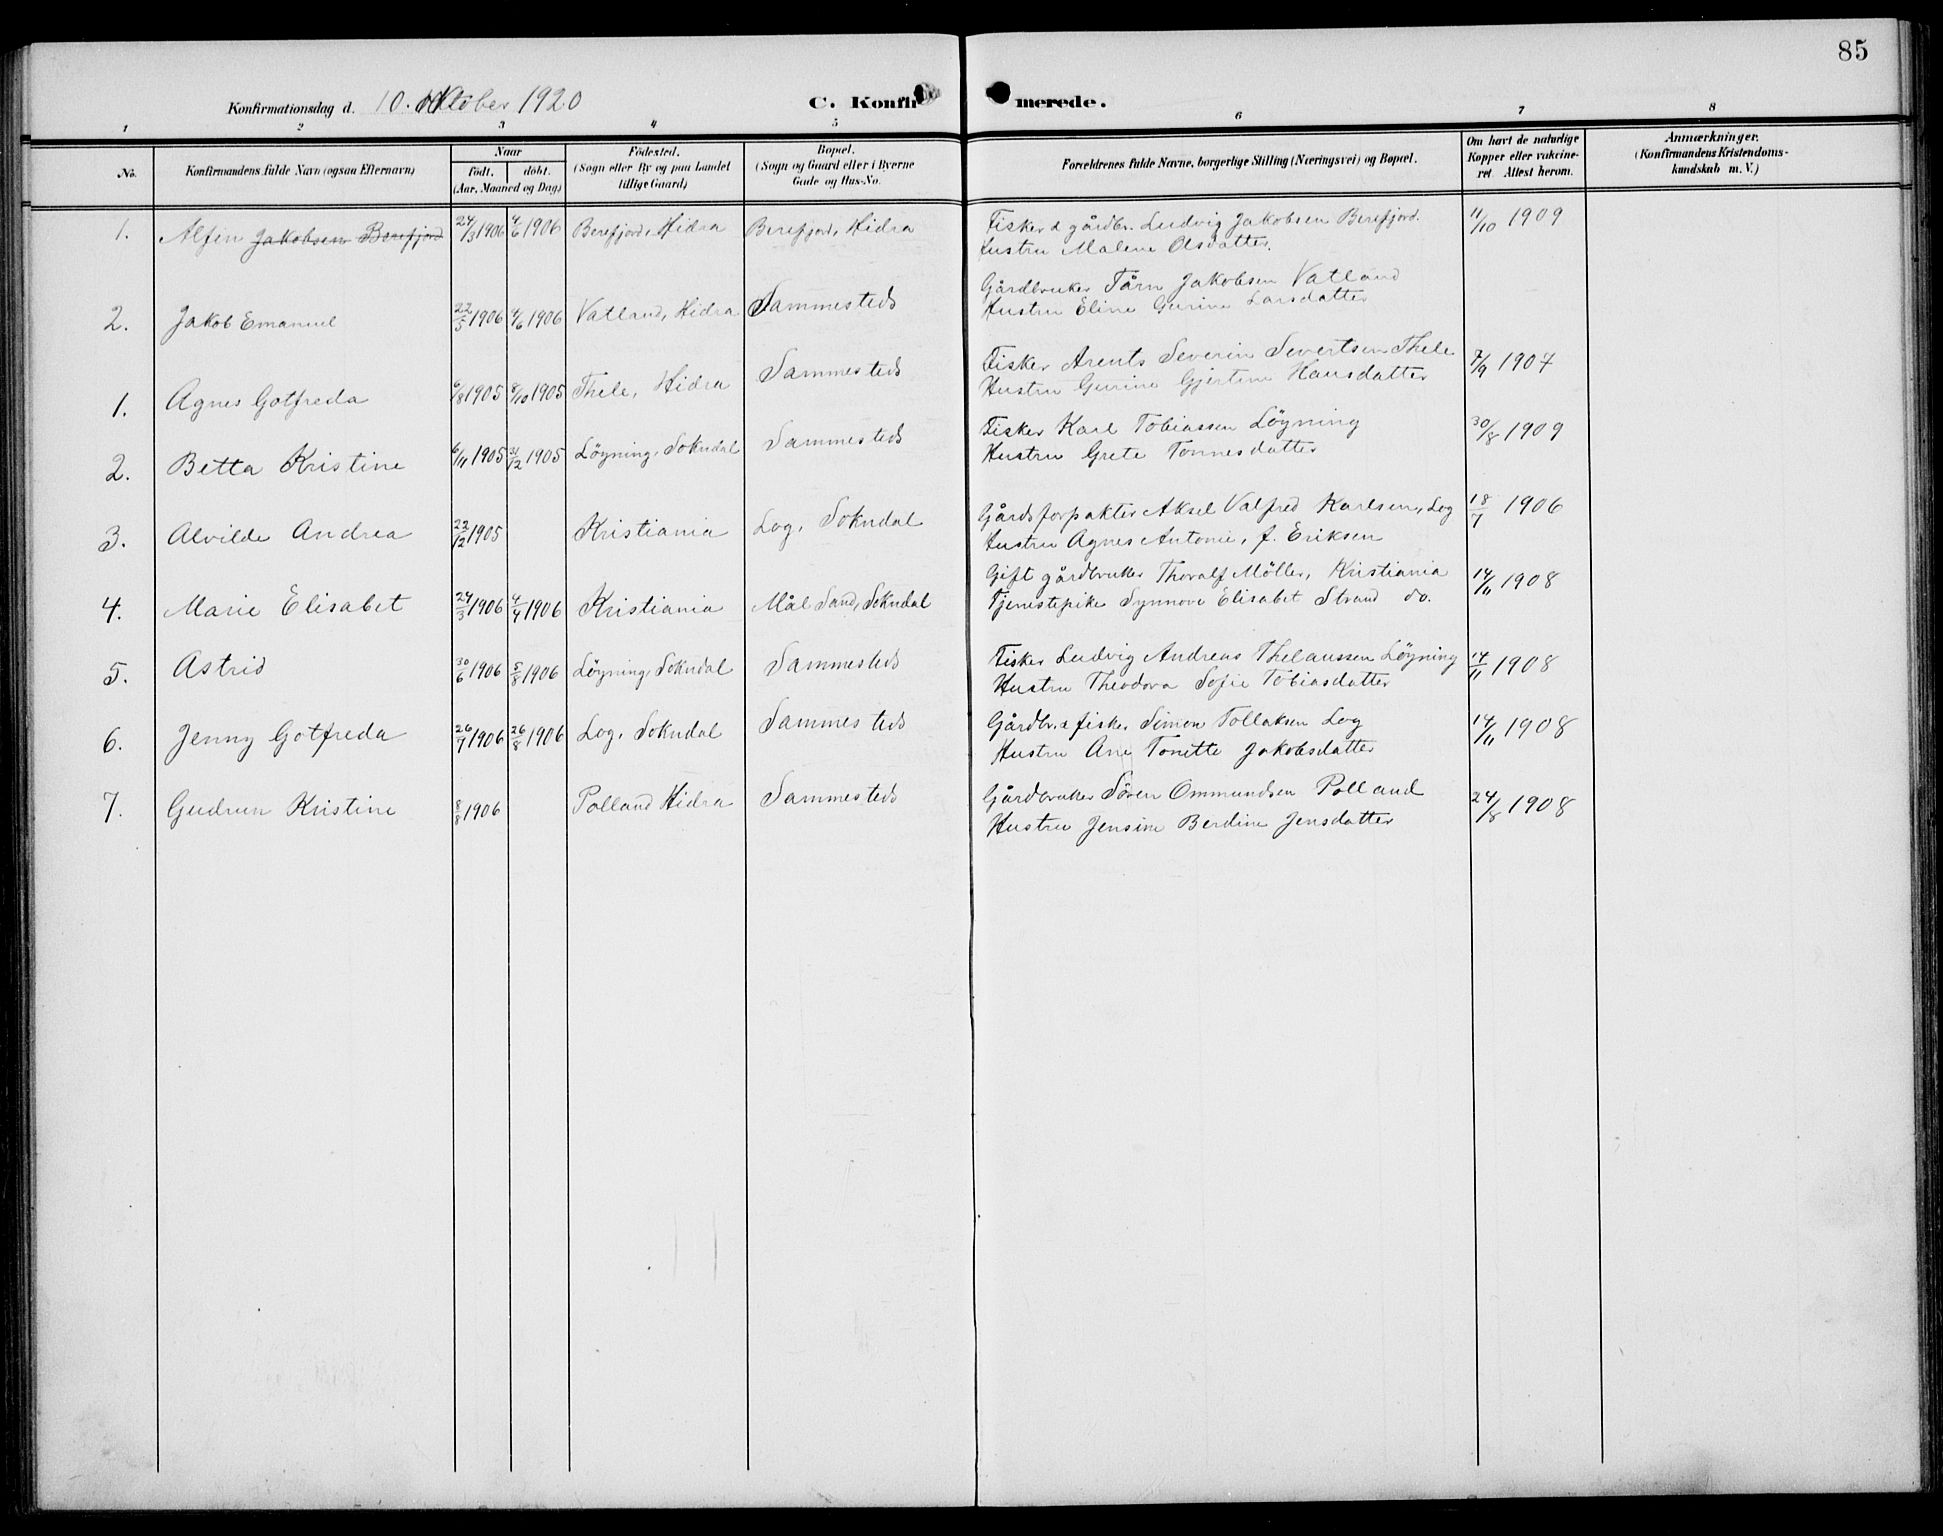 85
Konfirmationsdag d. 10. Oktober 1920 C. Konfirmerede.
1 2 3 4 5 6 7 8
No. Konfirmandens fulde Navn (ogsaa Efternavn) Naar født, døbt. (Aar, Maaned og Dag) Fødested. (Sogn eller By og paa Landet tillige Gaard) Bopæl. (Sogn og Gaard eller i Byerne Gade og Hus-No. Forældrenes fulde Navne, borgerlige Stilling (Næringsvei) og Bopæl. Om havt de naturlige Kopper eller vakcineret. Attest herom. Anmærkninger. (Konfirmandens Kristendomskundskab m. V.)
1. Alfin Jakobsen Berefjord 24/3 1906 4/6 1906 Berefjord, Hidra Berefjord, Hidra Fisker & gårdbr. Ludvig Jakobsen Berefjord. 11/10 1909
Hustru Malene Olsdatter.
2. Jakob Emanuel 22/5 1906 4/6 1906 Vatland, Hidra Sammesteds Gårdbruker Tårn Jakobsen Vatland
Hustru Eline Gurine Larsdatter
1. Agnes Gotfreda 6/8 1905 8/10 1905 Thele, Hidra Sammesteds Fisker Arents Severin Severtsen Thele 7/9 1907
Hustru Gurine Gjertine Hansdatter
2. Betta Kristine 6/11 1905 31/12 1905 Løgning, Sokndal Sammesteds Fisker Karl Tobiassen Løgning 30/8 1909
Hustru Grete Tonnesdatter
3. Alvilde Andrea 22/12 1905 Kristiania Log, Sokndal Gårdsforpakter Aksel Valfred Karlsen, Log 18/7 1906
Hustru Agnes Antonie, f. Eriksen
4. Marie Elisabet 24/3 1906 4/4 1906 Kristiania Mål Sand, Sokndal Gift gårdbruker Thoralf Möller, Kristiania 14/11 1908
Tjenestepike Synnove Elisabet Strand do.
5. Astrid 30/6 1906 5/8 1906 Løgning, Sokndal Sammesteds Fisker Ludvig Andreas Thelaussen Løgning 14/11 1908
Hustru Theodora Sofie Tobiasdatter
6. Jenny Gotfreda 26/7 1906 26/8 1906 Log, Sokndal Sammesteds Gårdbr. & fisker Simon Tollaksen Log 14/11 1908
Hustru Ane Tonette Jakobsdatter
7. Gudrun Kristine 8/8 1906 Polland Hidra Sammesteds Gårdbruker Søren Ommundsen Polland 24/8 1908
Hustru Jensine Berdine Jensdatter